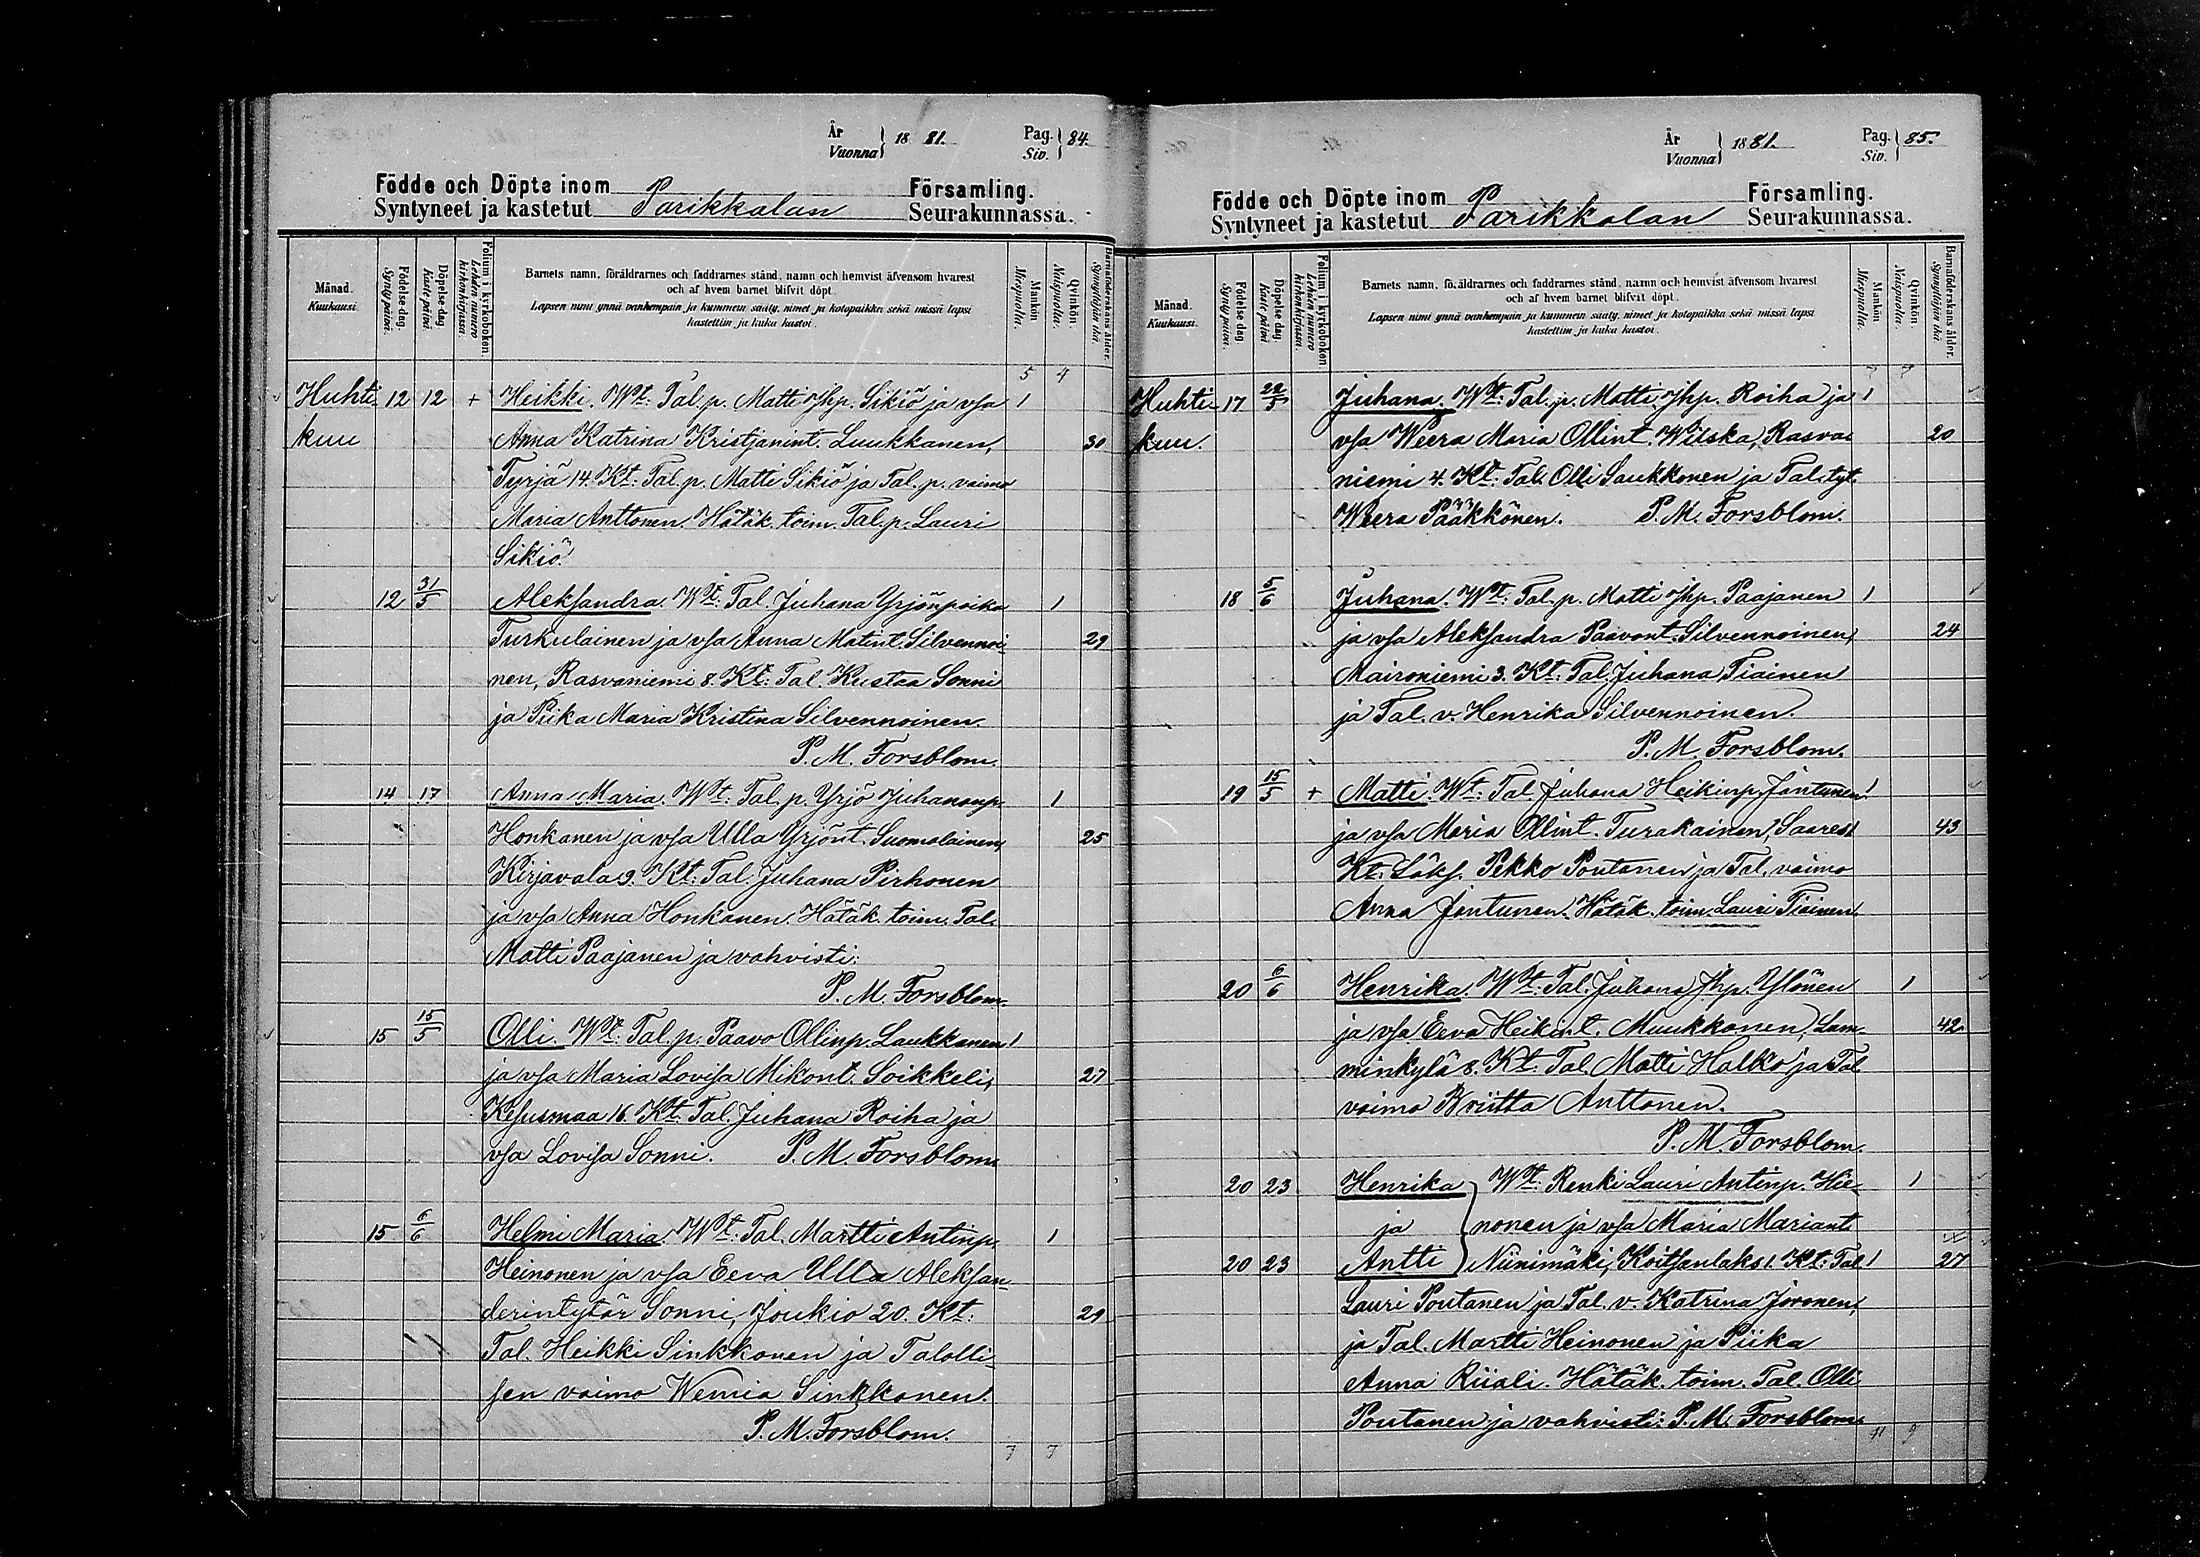 År
Vuonna } 1881. Pag.
Siv. } 84.
Födde och Döpte inom Församling.
Syntyneet ja kastetut Parikkalan Seurakunnassa.
Månad. Kuukausi.
Födelsedag. Synty päivä.
Döpelsedag. Kaste päivä.
Folium i kyrkoboken. Lehden numero kirkonkirjassa.
Barnets namn, föräldrarnes och faddrarnes stånd, namn och hemvist äfvensom hvarest
och af hvem barnet blifvit döpt.
Lapsen nimi ynnä vanhempain ja kummein sääty, nimet ja kotopaikka sekä missä lapsi
kastettiin ja kuka kastoi.
Mankön. Miespuolta.
Qvinkön. Naispuolta.
Barnaföderskans ålder. Synnyttäjän ikä.
5 4
Huhti 12 12 + Heikki. Wt: Tal. p. Matti Jhp. Sikiö ja vsa 1
kuu Anna Katrina Kristjanint. Luukkanen, 30
Tyrjä 14. Kt: Tal. p. Matti Sikiö ja Tal. p. vaimo
Maria Anttonen. Hätäk. toim. Tal. p. Lauri
Sikiö.
12 31/5 Aleksandra. Wt: Tal. Juhana Yrjönpoika 1
Turkulainen ja vsa Anna Matint. Silvennoi- 29
nen, Rasvaniemi 8. Kt: Tal. Kustaa Sonni
ja Piika Maria Kristina Silvennoinen.
P. M. Forsblom.
14 17 Anna Maria. Wt: Tal. p. Yrjö Juhananp. 1
Honkanen ja vsa Ulla Yrjönt. Suomalainen, 25
Kirjavala 9. Kt: Tal. Juhana Pirhonen
ja vsa Anna Honkanen. Hätäk. toim. Tal.
Matti Paajanen ja vahvisti:
P. M. Forsblom.
15 15/5 Olli. Wt: Tal. p. Paavo Ollinp. Laukkanen 1
ja vsa Maria Lovisa Mikont. Soikkeli, 27
Kesusmaa 16. Kt. Tal. Juhana Roiha ja
vsa Lovisa Sonni. P. M. Forsblom.
15 6/6 Helmi Maria. Wt: Tal. Martti Antinp. 1
Heinonen ja vsa Eeva Ulla Aleksan-
derintytär Sonni, Joukio 20. Kt: 29
Tal. Heikki Sinkkonen ja Talolli-
sen vaimo Wemia Sinkkonen.
P. M. Forsblom.
7 7
År
Vuonna } 1881. Pag.
Siv. } 85.
Födde och Döpte inom Församling.
Syntyneet ja kastetut Parikkalan Seurakunnassa.
Månad. Kuukausi.
Födelsedag. Synty päivä.
Döpelsedag. Kaste päivä.
Folium i kyrkoboken. Lehden numero kirkonkirjassa.
Barnets namn, föräldrarnes och faddrarnes stånd, namn och hemvist äfvensom hvarest
och af hvem barnet blifvit döpt.
Lapsen nimi ynnä vanhempain ja kummein sääty, nimet ja kotopaikka sekä missä lapsi
kastettiin ja kuka kastoi.
Mankön. Miespuolta.
Qvinkön. Naispuolta.
Barnaföderskans ålder. Synnyttäjän ikä.
7 7
Huhti- 17 22/5 Juhana. Wt: Tal. p. Matti Jhp. Roiha ja 1
kuu. vsa Weera Maria Ollint. Wilska, Rasva- 20
niemi 4. Kt: Tal. Olli Saukkonen ja Tal. tyt.
Weera Pääkkönen. P. M. Forsblom.
18 5/6 Juhana. Wt: Tal. p. Matti Jhp. Paajanen 1
ja vsa Aleksandra Paavont. Silvennoinen, 24
Maironiemi 3. Kt: Tal. Juhana Tiainen
ja Tal. v. Henrika Silvennoinen.
P. M. Forsblom.
19 15/5 + Matti. Wt: Tal Juhana Heikinp. Jantunen 1
ja vsa Maria Ollint. Turakainen, Saares 1 43
Kt. Lökf. Pekko Poutanen ja Tal. vaimo
Anna Jantunen. Hätäk. toim. Lauri Tiainen.
20 6/6 Henrika. Wt: Tal. Juhana Jhp. Ylönen 1
ja vsa Eeva Heikint. Muukkonen, Lam- 42
minkylä 8. Kt: Tal. Matti Halko ja Tal
vaimo Briitta Anttonen.
P. M. Forsblom.
20 23 Henrika } Wt: Renki Lauri Antinp. Hie- 1
ja nonen ja vsa Maria Mariant.
20 23 Antti Niinimäki, Koitsanlaks 1. Kt: Tal 1 27
Lauri Poutanen ja Tal. v. Katrina Joronen,
ja Tal. Martti Heinonen ja Piika
Anna Riiali. Hätäk. toim. Tal. Olli
Poutanen ja vahvisti: P. M. Forsblom.
11 9